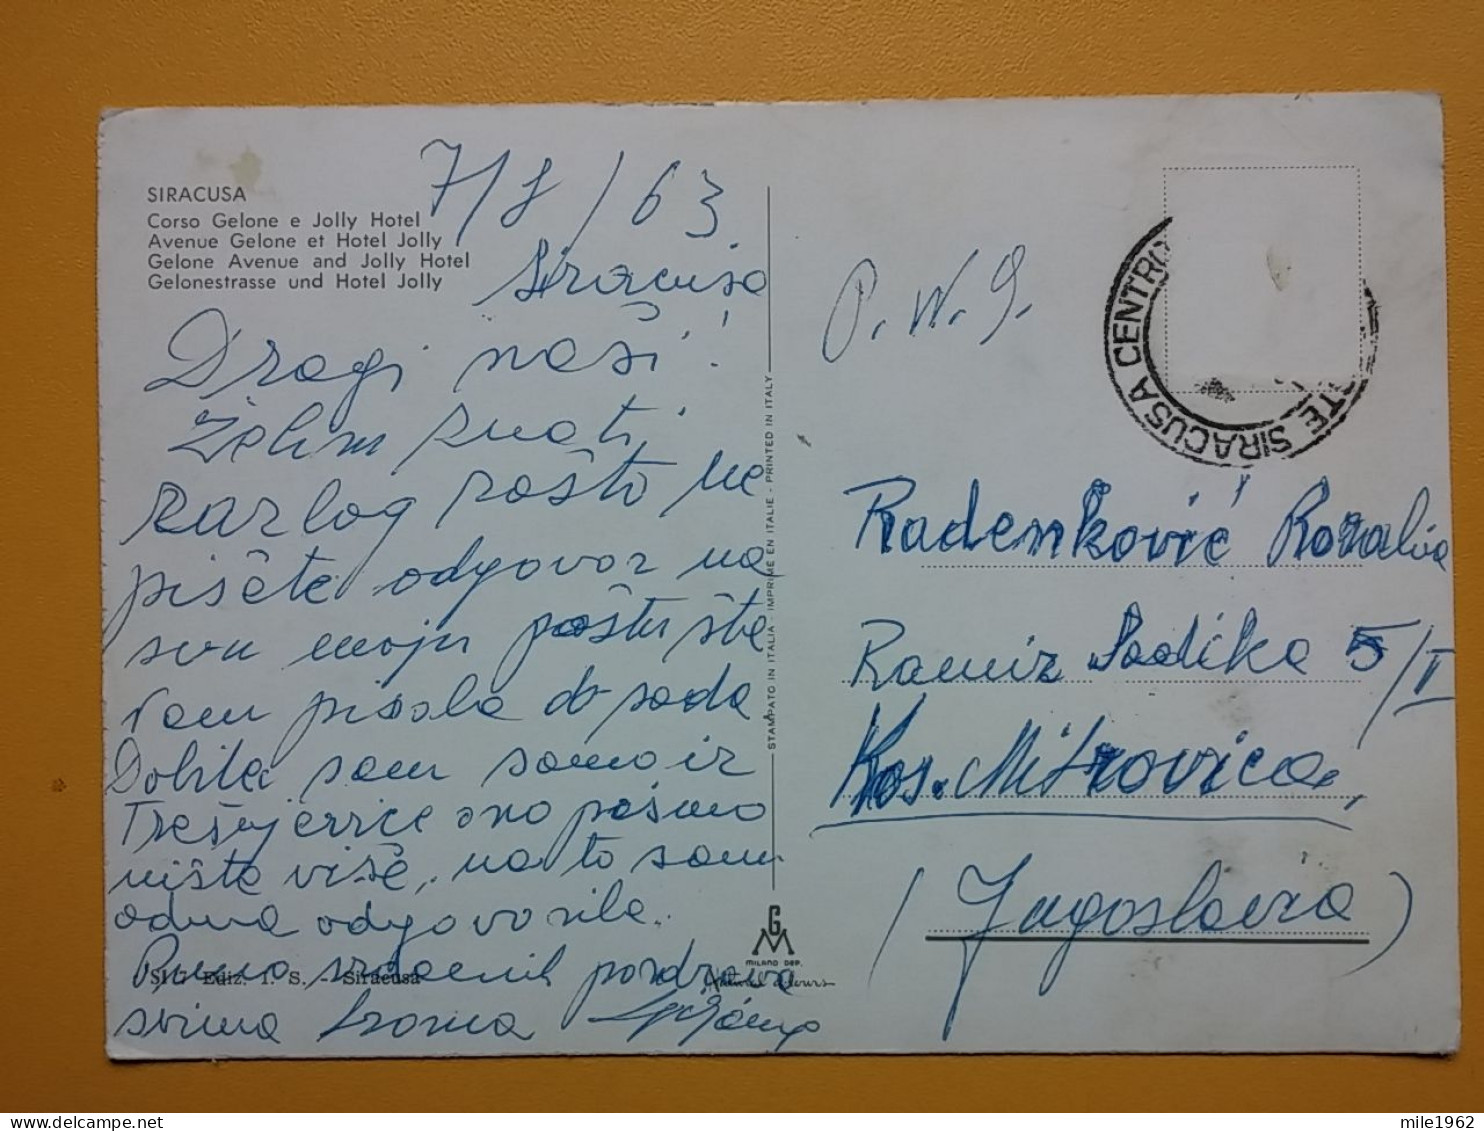 SIRACUSA
Corso Gelone e Jolly Hotel
Avenue Gelone et Hotel Jolly
Gelone Avenue and Jolly Hotel
Gelonestrasse und Hotel Jolly
7/8/63
Siracusa
Dragi naši!
Želim znati
razlog zašto ne
pišete odgovor na
svu moju poštu šte
vam pisala do sada
Dobila sam samo iz
Trešnjevice ono pošmo
ništa više, na to sam
odma odgovorila.
Puno srdačnih pozdrava
svima
SI 7 Ediz. I. S. - Siracusa
STAMPATO IN ITALIA - IMPRIMÉ EN ITALIE - PRINTED IN ITALY
G M
MILANO DEP.
Natural colours
P. N. 9.
SIRACUSA CENTRO
SIRACUSA
Radenković Rozalia
Ramiz Sadika 5/I
Kos. Mitrovica,
(Jugoslavia)
mile1962